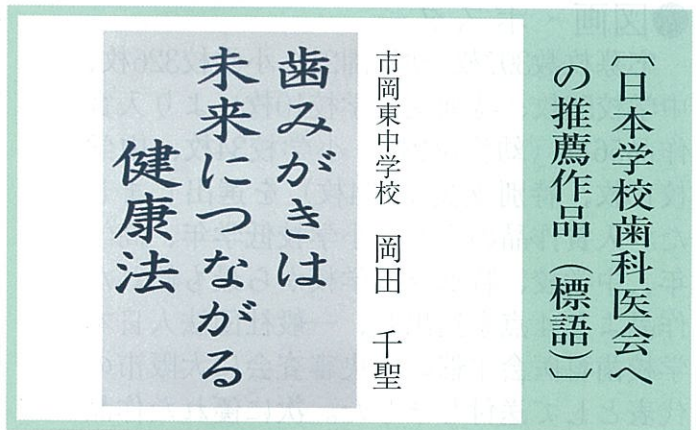 〔日本学校歯科医会へ
の推薦作品（標語）〕
市岡東中学校　岡田　千聖
歯みがきは
未来につながる
健康法